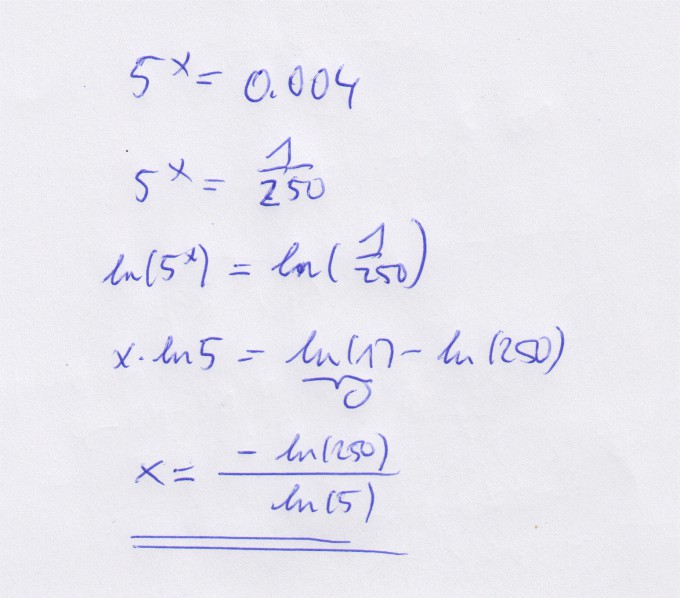 5^x = 0.004
5^x = 1/250
ln(5^x) = ln(1/250)
x · ln5 = ln(1) - ln(250)
0
x = -ln(250)/ln(5)